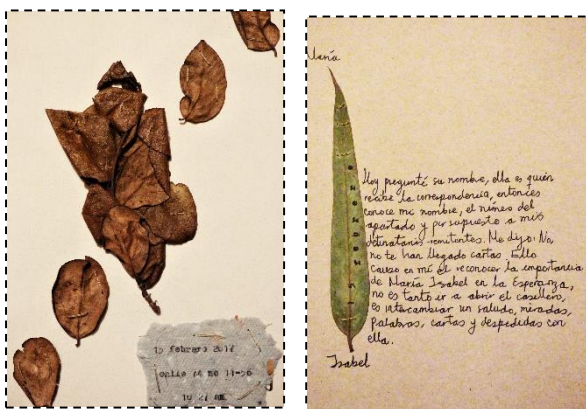 febrero
calle no
am
María
Hoy pregunté su nombre, ella es quien
recibe la correspondencia, entonces
conoce mi nombre, el número del
apartado y por supuesto a mis
destinatarios remitentes. Me dijo: No,
no te han llegado cartas. Ello
causo en mí el reconocer la importancia
de María Isabel en la Esperanza,
no es tanto ir a abrir el casillero,
es intercambiar un saludo, miradas,
Palabras, cartas y despedidas con
ella.
Isabel